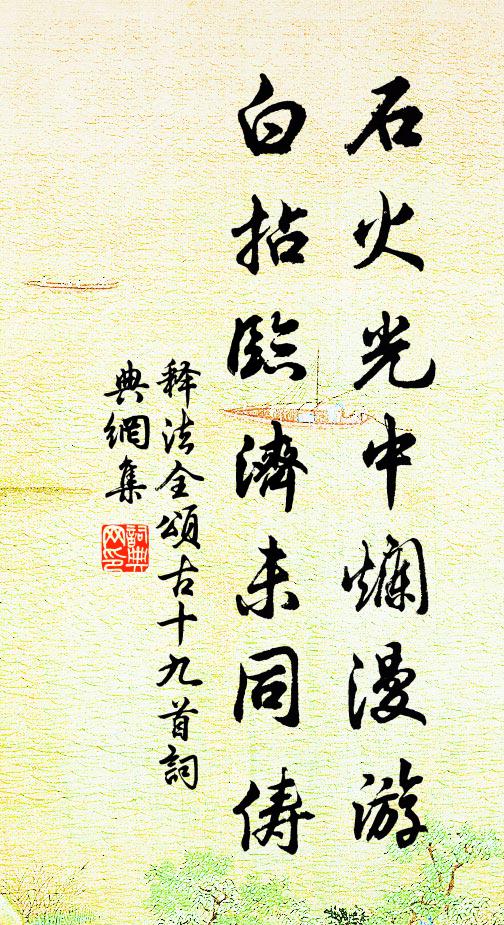 石火光中爛漫游
白拈臨濟未同儔
释法全頌古十九首詞
典網集
詞典
网印